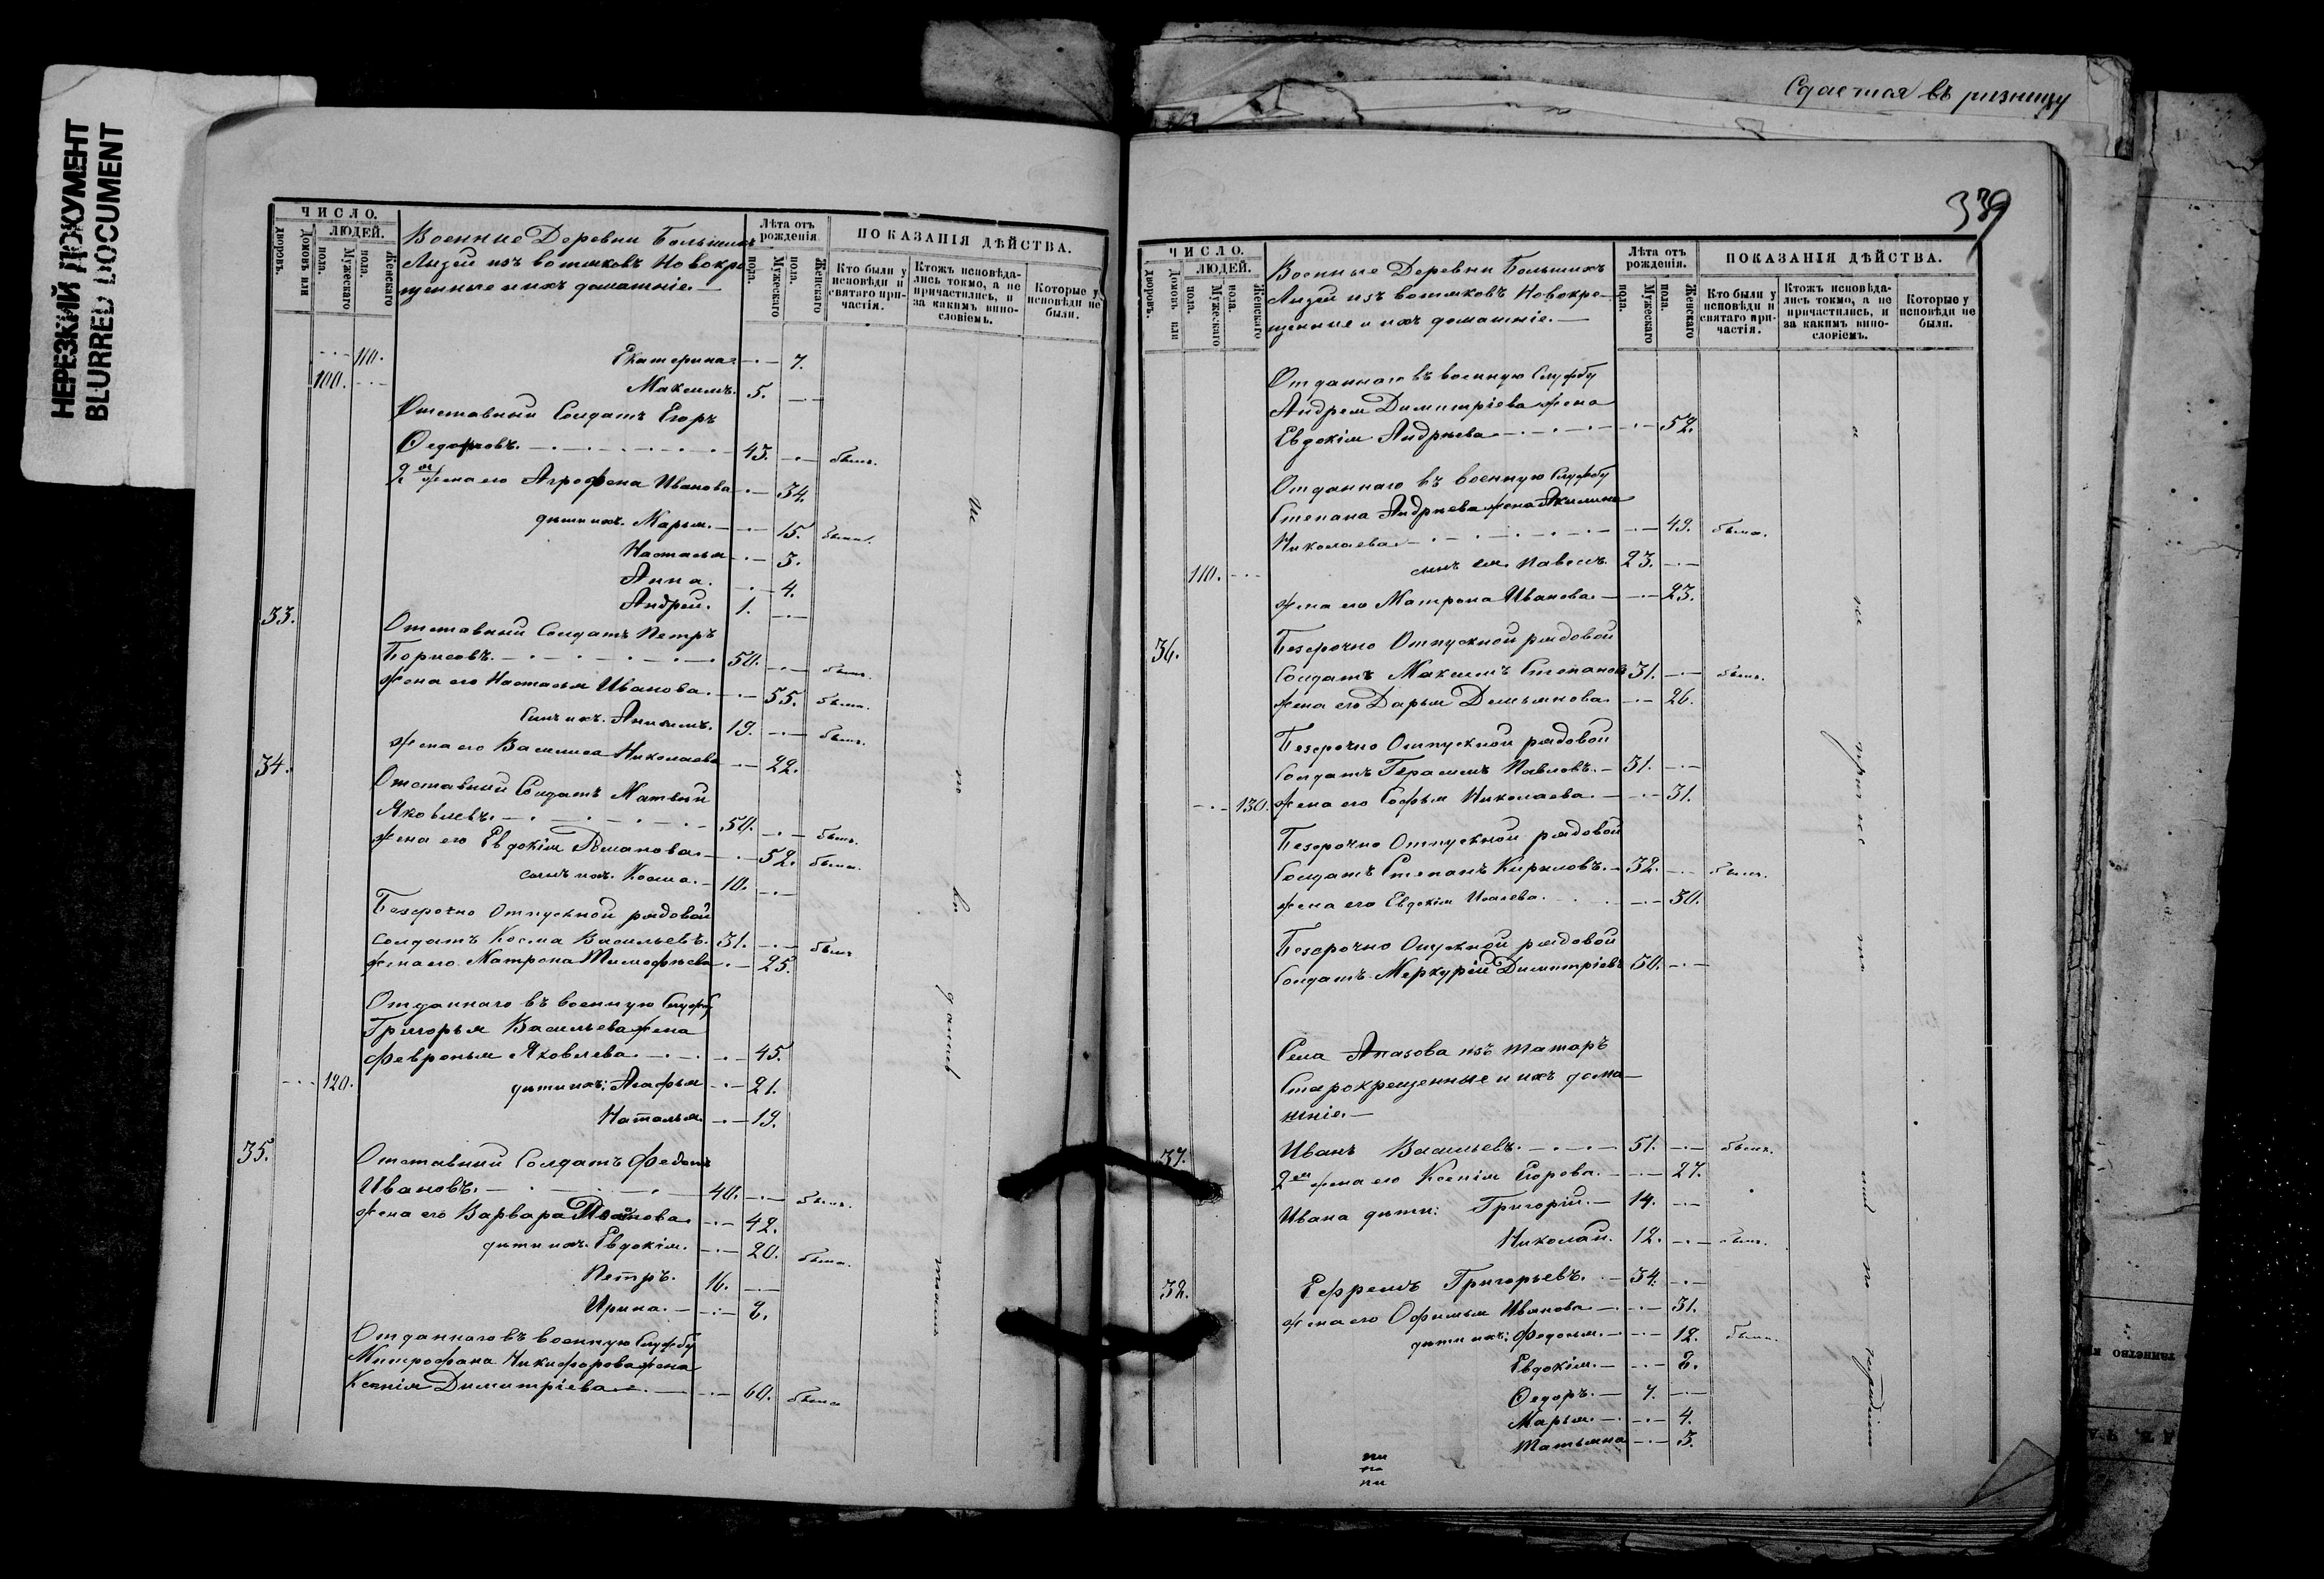 НЕРЕЗКИЙ ДОКУМЕНТ
BLURRED DOCUMENT
Сдается въ ризницу
ЧИСЛО.
Домовъ или дворовъ.
ЛЮДЕЙ.
Мужескаго пола.
Женскаго пола.
Военные Деревни Большихъ
Лызей изъ вотяковъ Новокре
щенные и ихъ домашніе. —
Лѣта отъ рожденія
Мужескаго пола.
Женскаго пола.
ПОКАЗАНІЯ ДѢЙСТВА.
Кто были у исповѣди и святаго причастія.
Ктожъ исповѣдались токмо, а не причастились, и за какимъ винословіемъ.
Которые у исповѣди не были.
110. Екатерина. 7.
100. Максимъ. 5.
Отставный Солдатъ Егоръ
Ѳедоровъ. 43. былъ.
2я жена его Агрофена Иванова 34.
дѣти ихъ. Марья. 15. была.
Настасья 5.
Анна. 4.
Андрей. 1.
33. Отставный Солдатъ Петръ
Борисовъ. 50. былъ.
жена его Настасья Иванова. 55. была.
Сынъ ихъ. 19. былъ.
жена его Василиса Николаева 22.
34. Отставный Солдатъ Матвѣй
Яковлевъ. 50. былъ.
жена его Евдокія Романова. 52. была.
сынъ ихъ. Косма. 10.
Безсрочно Отпускной рядовой
солдатъ Косма Васильевъ. 31. былъ
жена его Матрона Тимофѣева 25.
Отданнаго въ военную Службу
Григорья Васильева жена
Февронья Яковлева. 45.
120. дѣти ихъ: Агафья 21.
Наталья. 19.
35. Отставный Солдатъ Федотъ
Ивановъ. 40. былъ.
жена его Варвара 42.
дѣти ихъ. Евдокія. 20. была.
Петръ. 16.
Ирина. 8.
Отданнаго въ военную Службу
Митрофана Никифорова жена
Ксенія Димитріева. 60. была
339
ЧИСЛО.
Домовъ или дворовъ.
ЛЮДЕЙ.
Мужескаго пола.
Женскаго пола.
Военные Деревни Большихъ
Лызей изъ вотяковъ Новокре—
щенные и ихъ домашніе. —
Лѣта отъ рожденія.
Мужескаго пола.
Женскаго пола.
ПОКАЗАНІЯ ДѢЙСТВА.
Кто были у исповѣди и святаго причастія.
Ктожъ исповѣдались токмо, а не причастились, и за какимъ винословіемъ.
Которые у исповѣди не были.
Отданнаго въ военную Службу
Андрея Димитріева жена
Евдокія Андрѣева 52.
Отданнаго въ военную Службу
Степана Андрѣева жена Акилина
Николаева. 49. была.
110. сынъ ея Павелъ. 23.
жена его Матрона Иванова. 23.
36. Безсрочно Отпускной рядовой
Солдатъ Максимъ Степановъ 31. былъ.
жена его Дарья Демьянова. 26.
Безсрочно Отпускной рядовой
Солдатъ Герасимъ Павловъ. 31.
130. жена его Софья Николаева. 31.
Безсрочно Отпускной рядовой
Солдатъ Степанъ Кириловъ. 32. былъ.
жена его Евдокія Исаева. 30.
Безсрочно Опускной рядовой
Солдатъ Меркурій Димитріевъ 30.
Села Апазова изъ татаръ
Старокрещенные и ихъ дома—
шніе. —
37. Иванъ Васильевъ. 51. былъ.
2я жена его Ксенія Егорова. 27.
Ивана дѣти: Григорій. 14.
Николай. 12. былъ.
38. Ефремъ Григорьевъ. 34.
жена его Офимья Иванова 31.
дѣти ихъ: Федосья. 12. была.
Евдокія. 8.
Ѳедоръ. 7.
Марья. 4.
Татьяна 3.